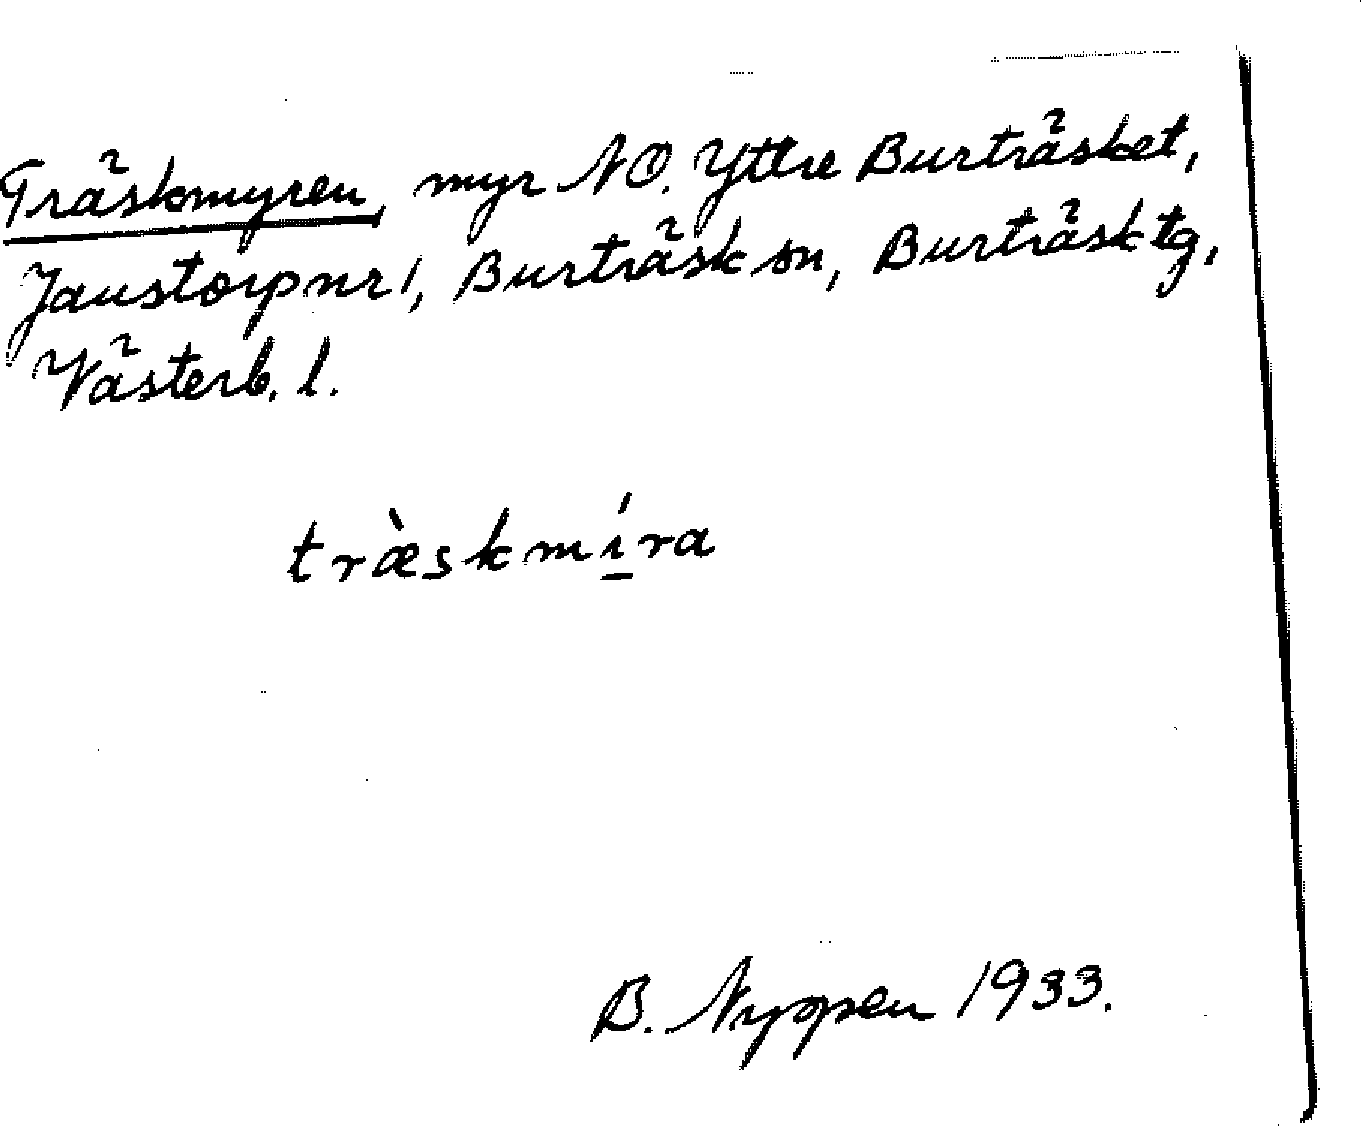 Träskmyren, myr NO. Yttre Burträsket,
Janstorp nr 1, Burträsk sn, Burträsk tg,
Västerb. l.
træ̀skmí̱ra
B. Nyppen 1933.